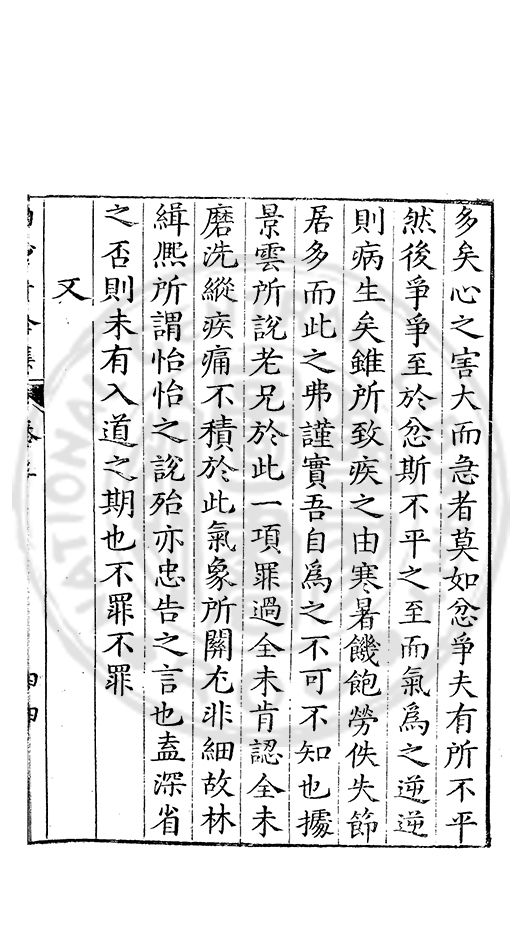 多矣心之害大而急者莫如忿爭夫有所不平
然後爭爭至於忿斯不平之至而氣爲之逆逆
則病生矣雖所致疾之由寒暑饑飽勞佚失節
居多而此之弗謹實吾自爲之不可不知也據
景雲所說老兄於此一項罪過全未肯認全未
磨洗縱疾痛不積於此氣象所關尤非細故林
緝熈所謂怡怡之說殆亦忠告之言也盍深省
之否則未有入道之期也不罪不罪
又